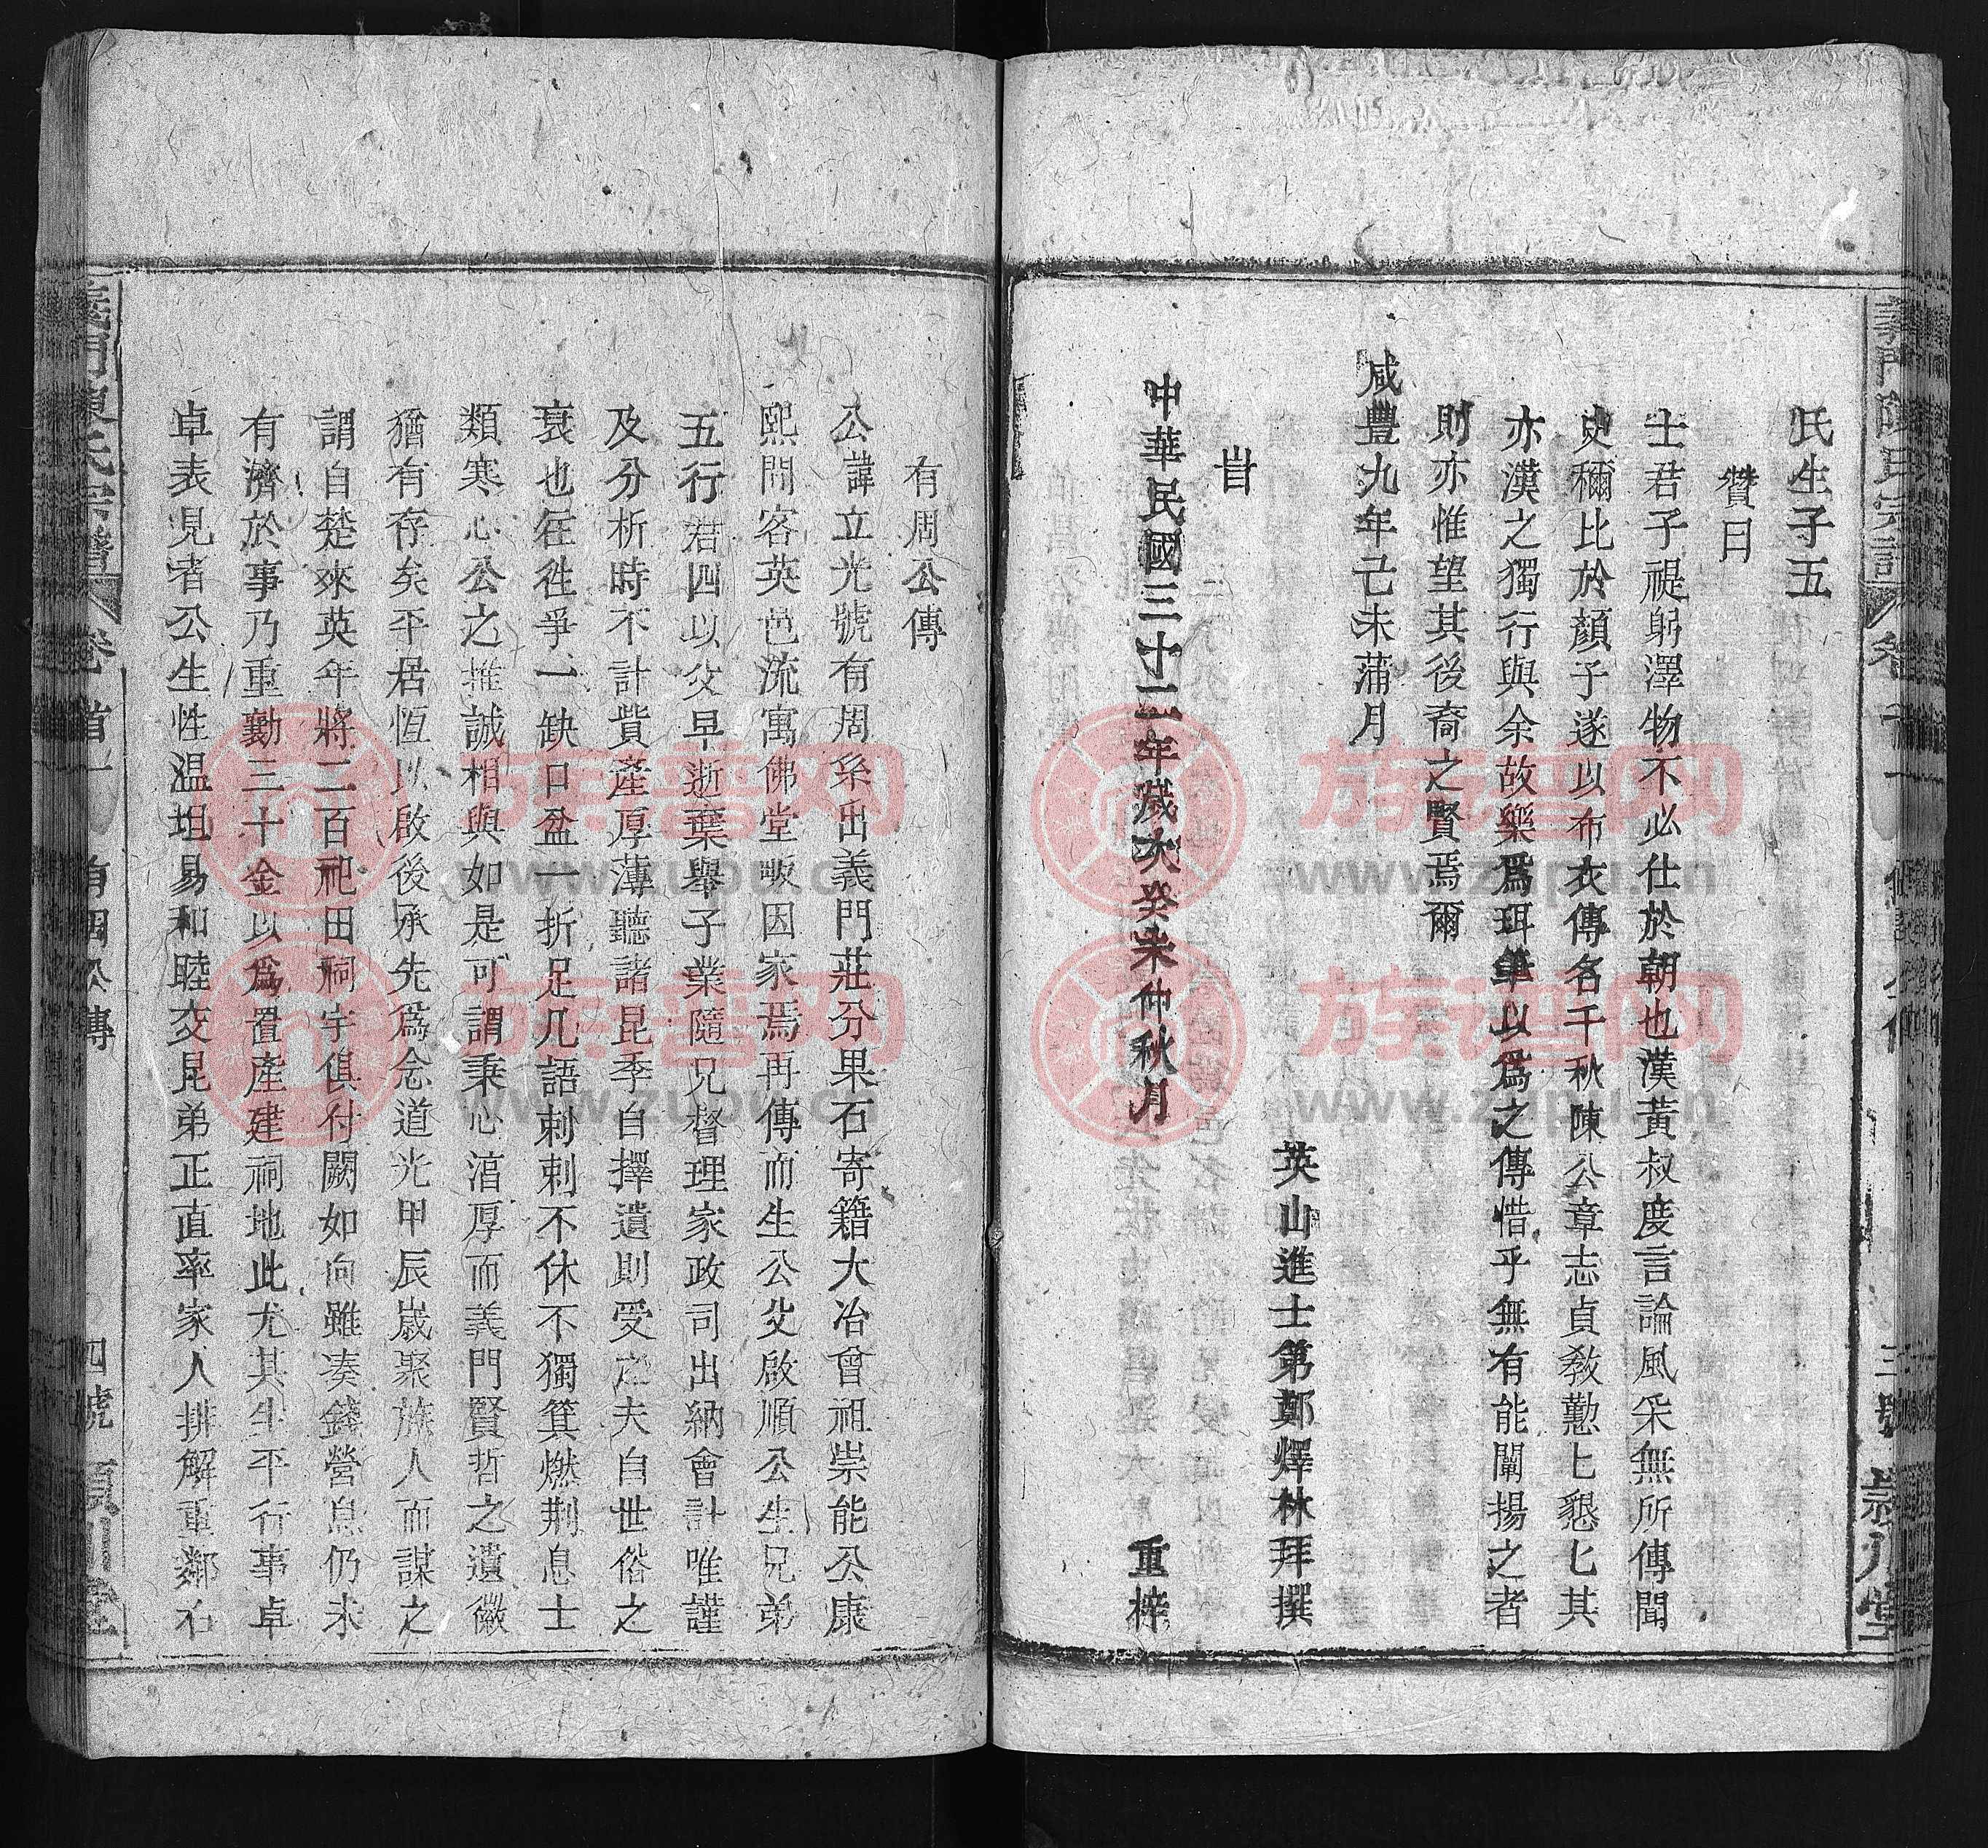 氏生子五
贊曰
士君子禔躬澤物不必仕於朝也漢黃叔度言論風采無所傳聞
史稱比於顏子遂以布衣傳名千秋陳公章志貞教懃匕懇匕其
亦漢之獨行與余故樂爲珥筆以爲之傳惜乎無有能闡揚之者
則亦惟望其後裔之賢焉爾
咸豐九年己未蒲月
英山進士第鄭燡林拜撰
旹
中華民國三十二年歲次癸未仲秋月
重梓
有周公傳
公諱立光號有周系出義門莊分果石寄籍大冶曾祖崇能公康
熙間客英邑流寓佛堂畈因家焉再傳而生公父啟順公生兄弟
五行君四以父早逝棄舉子業隨兄督理家政司出納會計唯謹
及分析時不計貲產厚薄聽諸昆季自擇遺則受之夫自世俗之
衰也徃徃爭一缺口盆一折足几語刺刺不休不獨箕燃荆息士
類寒心公之推誠相與如是可謂秉心湻厚而義門賢哲之遺徽
猶有存矣平居恆以啟後承先爲念道光甲辰歲聚族人而謀之
謂自楚來英年將二百祀田祠宇俱付闕如向雖凑錢營息仍未
有濟於事乃重勸三十金以爲置產建祠地此尤其生平行事卓
卓表見者公生性温坦易和睦交昆弟正直率家人排解重鄰右
義門陳氏宗譜
卷首一
有周公傳
四號
潁川堂